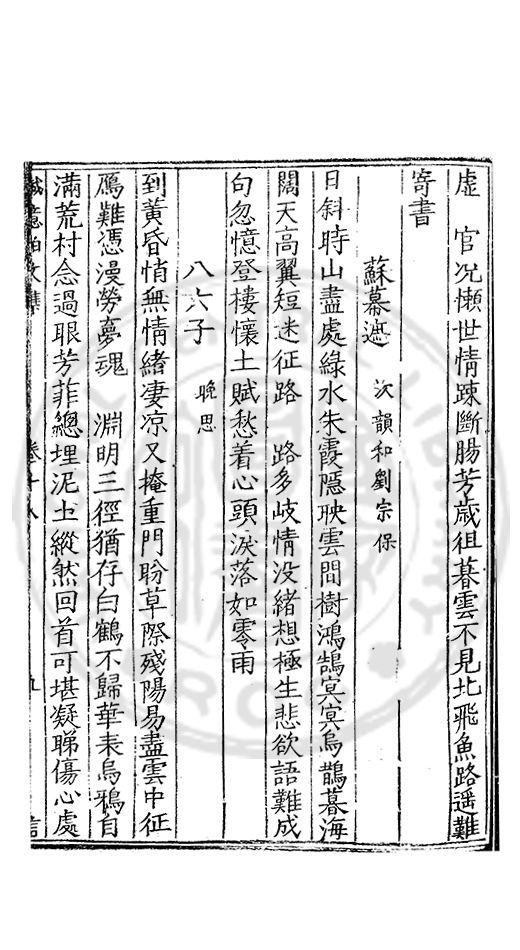 虛　官况懶世情踈斷腸芳歲徂暮雲不見北飛魚路遥難
寄書
蘇幕遮　次韻和劉宗保
日斜時山盡處綠水朱霞隱映雲間樹鴻鵠冥冥烏鵲暮海
闊天高翼短迷征路　路多岐情没緒想極生悲欲語難成
句忽憶登樓懷土賦愁着心頭淚落如零雨
八六子　晚思
到黄昏悄無情緒凄凉又掩重門盼草際殘陽易盡雲中征
鴈難憑漫勞夢魂　淵明三徑猶存白鶴不歸華表烏鴉自
滿荒村念過眼芳菲總埋泥土縱然回首可堪凝睇傷心處
誠意伯文集　卷十八